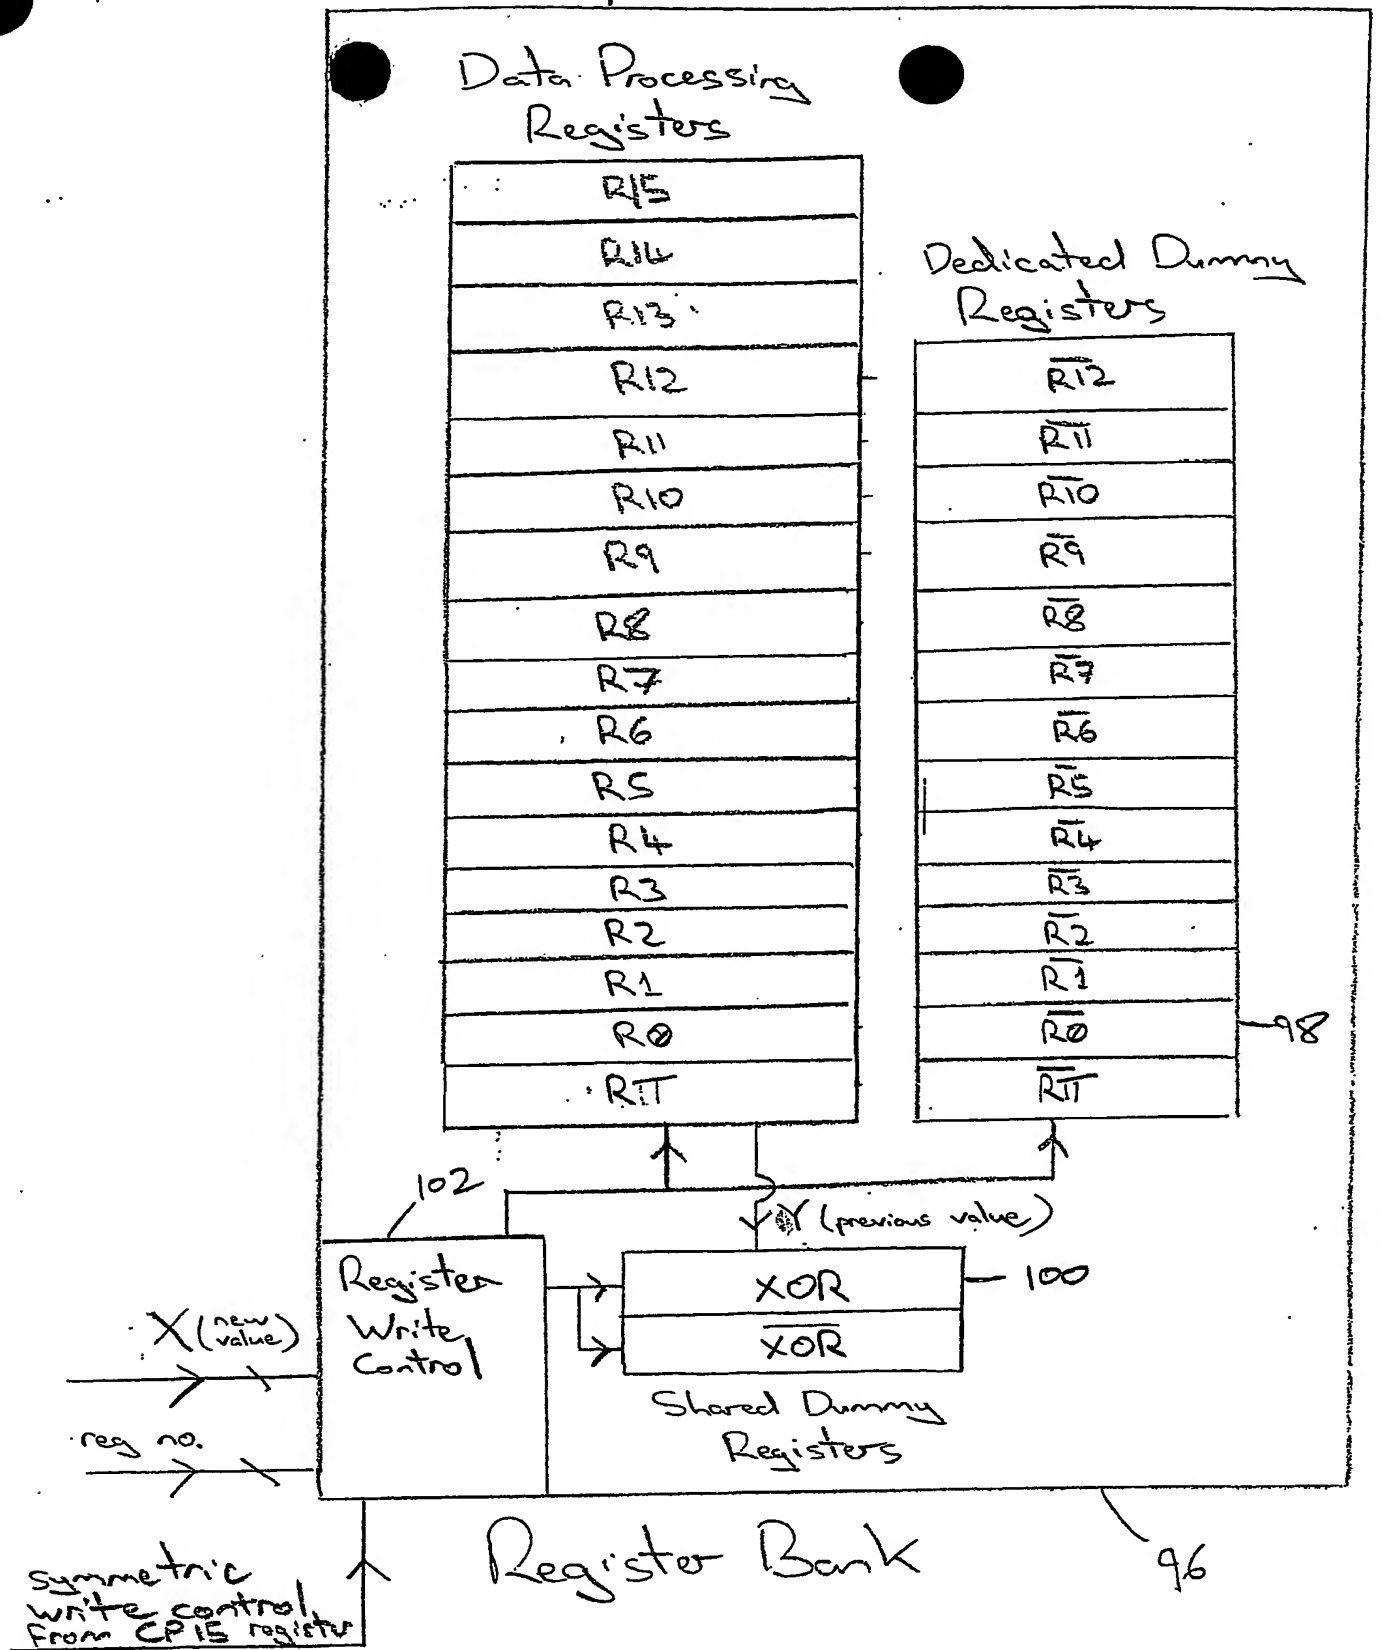 Data Processing
Registers
R15
R14
R13
R12
R11
R10
R9
R8
R7
R6
R5
R4
R3
R2
R1
R0
RIT
Dedicated Dummy
Registers
R̅1̅2̅
R̅1̅1̅
R̅1̅0̅
R̅9̅
R̅8̅
R̅7̅
R̅6̅
R̅5̅
R̅4̅
R̅3̅
R̅2̅
R̅1̅
R̅0̅
R̅I̅T̅
98
102
Y (previous value)
Register
Write
Control
XOR
X̅O̅R̅
100
Shared Dummy
Registers
X (new value)
reg no.
symmetric
write control
from CP15 register
Register Bank
96